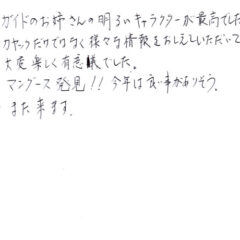 ガイドのお姉さんの明るいキャラクターが最高でした
カヤックだけではなく様々な情報をおしえていただいて
大変楽しく有意義でした。
マングース発見!! 今年は良い事がありそう。
また来ます。